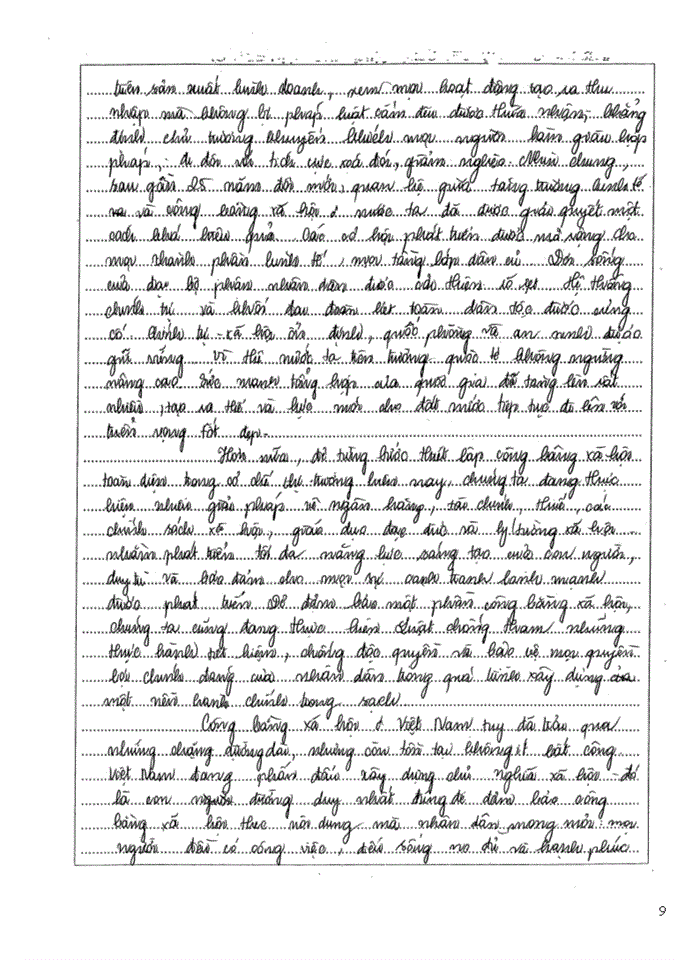 triển sản xuất kinh doanh, xem mọi hoạt động tạo ra thu
nhập mà không bị pháp luật cấm đều được thừa nhận, khẳng
định chủ trương khuyến khích mọi người làm giàu hợp
pháp, đi đôi với tích cực xoá đói, giảm nghèo. Nhìn chung,
sau gần 25 năm đổi mới, quan hệ giữa tăng trưởng kinh tế
và công bằng xã hội ở nước ta đã được giải quyết một
cách khá hiệu quả. Các cơ hội phát triển được mở rộng cho
mọi thành phần kinh tế, mọi tầng lớp dân cư. Đời sống
của đại bộ phận nhân dân được cải thiện rõ rệt. Hệ thống
chính trị và khối đại đoàn kết toàn dân tộc được củng
cố. Chính trị - xã hội ổn định, quốc phòng và an ninh được
giữ vững. Vị thế nước ta trên trường quốc tế không ngừng
nâng cao. Sức mạnh tổng hợp của quốc gia đã tăng lên rất
nhiều, tạo ra thế và lực mới cho đất nước tiếp tục đi lên với
triển vọng tốt đẹp.
Hơn nữa, để từng bước thiết lập công bằng xã hội
toàn diện trong cơ chế thị trường hiện nay, chúng ta đang thực
hiện nhiều giải pháp về ngân hàng, tài chính, thuế, các
chính sách xã hội, giáo dục đạo đức và lý tưởng xã hội
nhằm phát triển tối đa năng lực sáng tạo của con người,
duy trì và bảo đảm cho mọi sự cạnh tranh lành mạnh
được phát triển. Để đảm bảo một phần công bằng xã hội,
chúng ta cũng đang thực hiện Luật chống tham nhũng
thực hành tiết kiệm, chống độc quyền và bảo vệ mọi quyền
lợi chính đáng của nhân dân trong quá trình xây dựng
một nền hành chính trong sạch
Công bằng xã hội ở Việt Nam tuy đã trải qua
những chặng đường dài, nhưng còn tồn tại không ít bất công
Việt Nam đang phấn đấu xây dựng chủ nghĩa xã hội - đó
là con đường duy nhất đúng để đảm bảo công
bằng xã hội theo nội dung mà nhân dân mong mỏi: mọi
người đều có công việc, đều sống no đủ và hạnh phúc
9